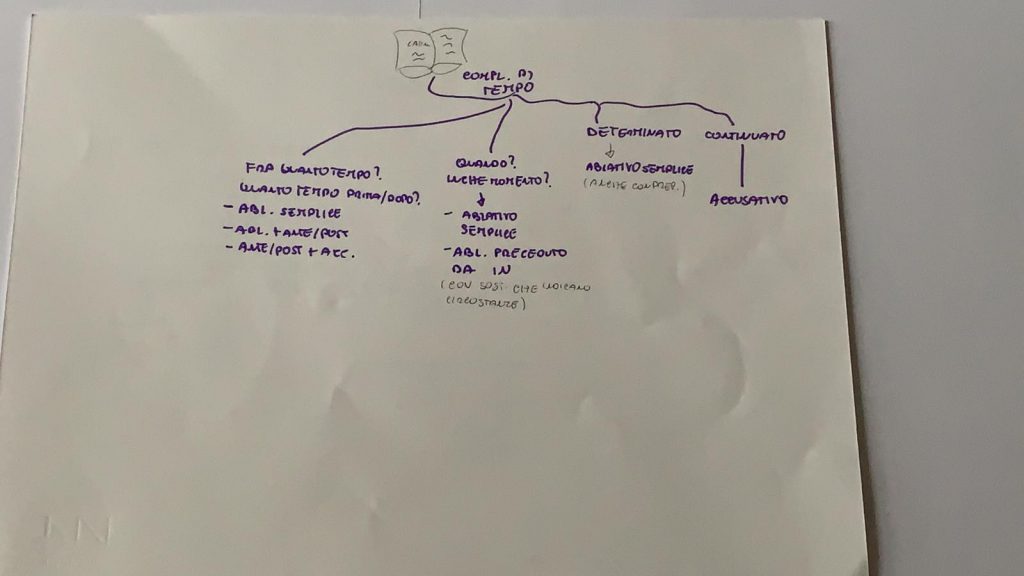 COMPL. DI
TEMPO
FRA QUANTO TEMPO?
QUANTO TEMPO PRIMA/DOPO?
- ABL. SEMPLICE
- ABL. + ANTE/POST
- ANTE/POST + ACC.
QUANDO?
IN CHE MOMENTO?
- ABLATIVO
SEMPLICE
- ABL. PRECEDUTO
DA IN
(CON SOST. CHE INDICANO
CIRCOSTANZE)
DETERMINATO
ABLATIVO SEMPLICE
(ANCHE CON PREP.)
CONTINUATO
ACCUSATIVO